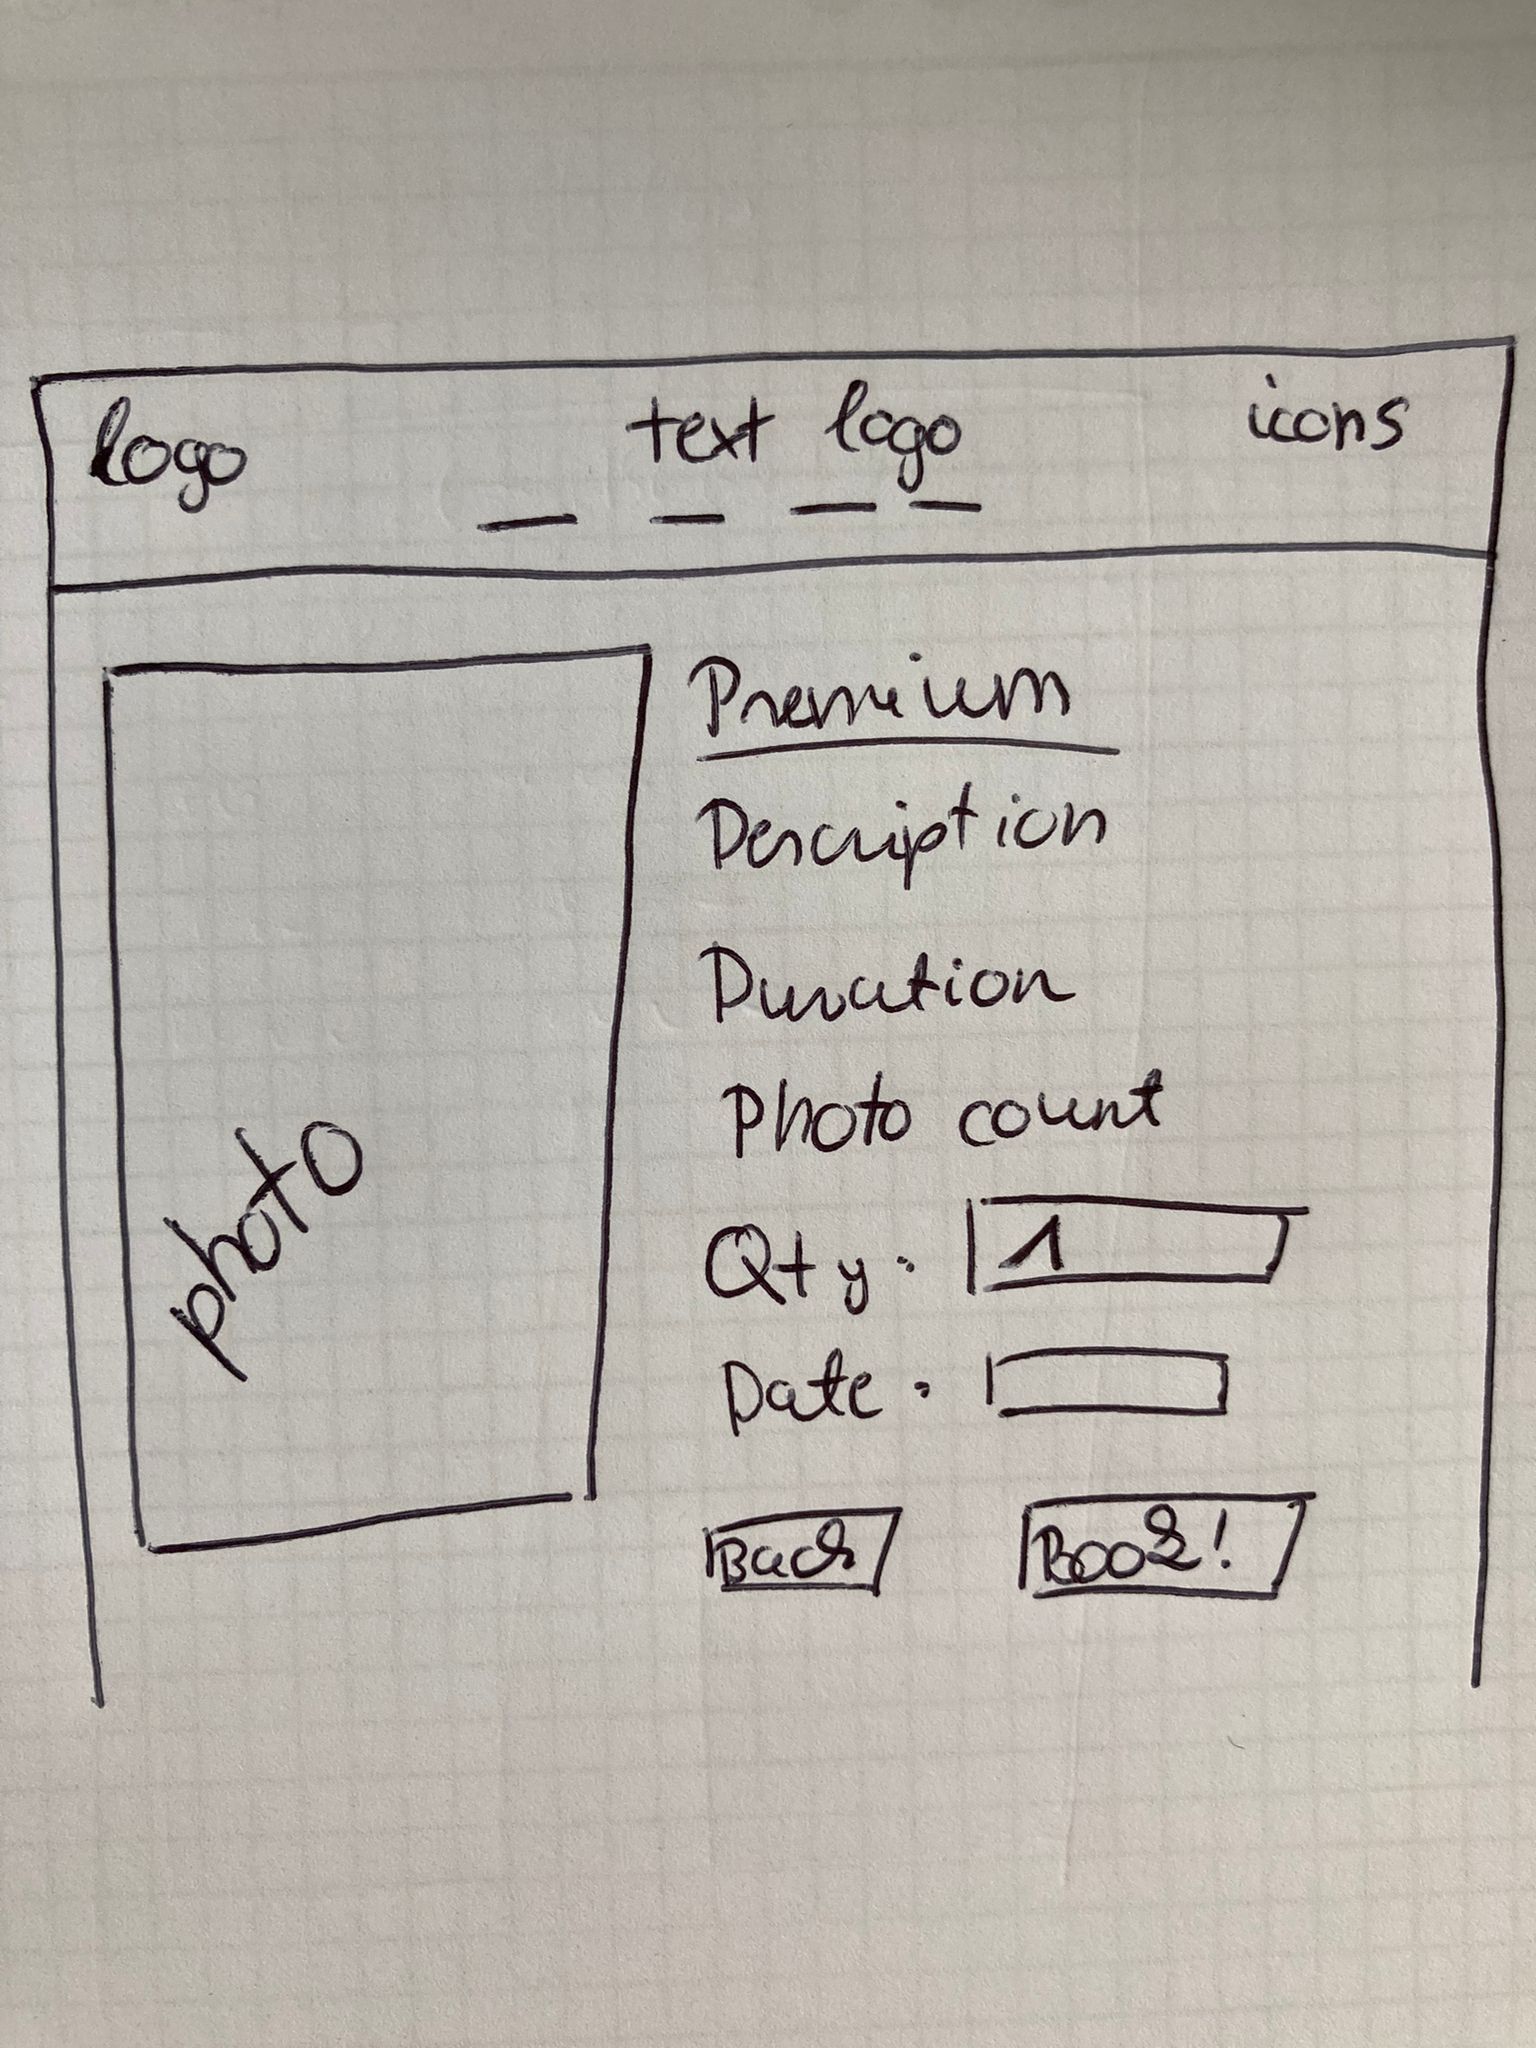 logo text logo icons
Premium
Description
Duration
Photo count
photo
Qty: 1
Date:
Back Book!